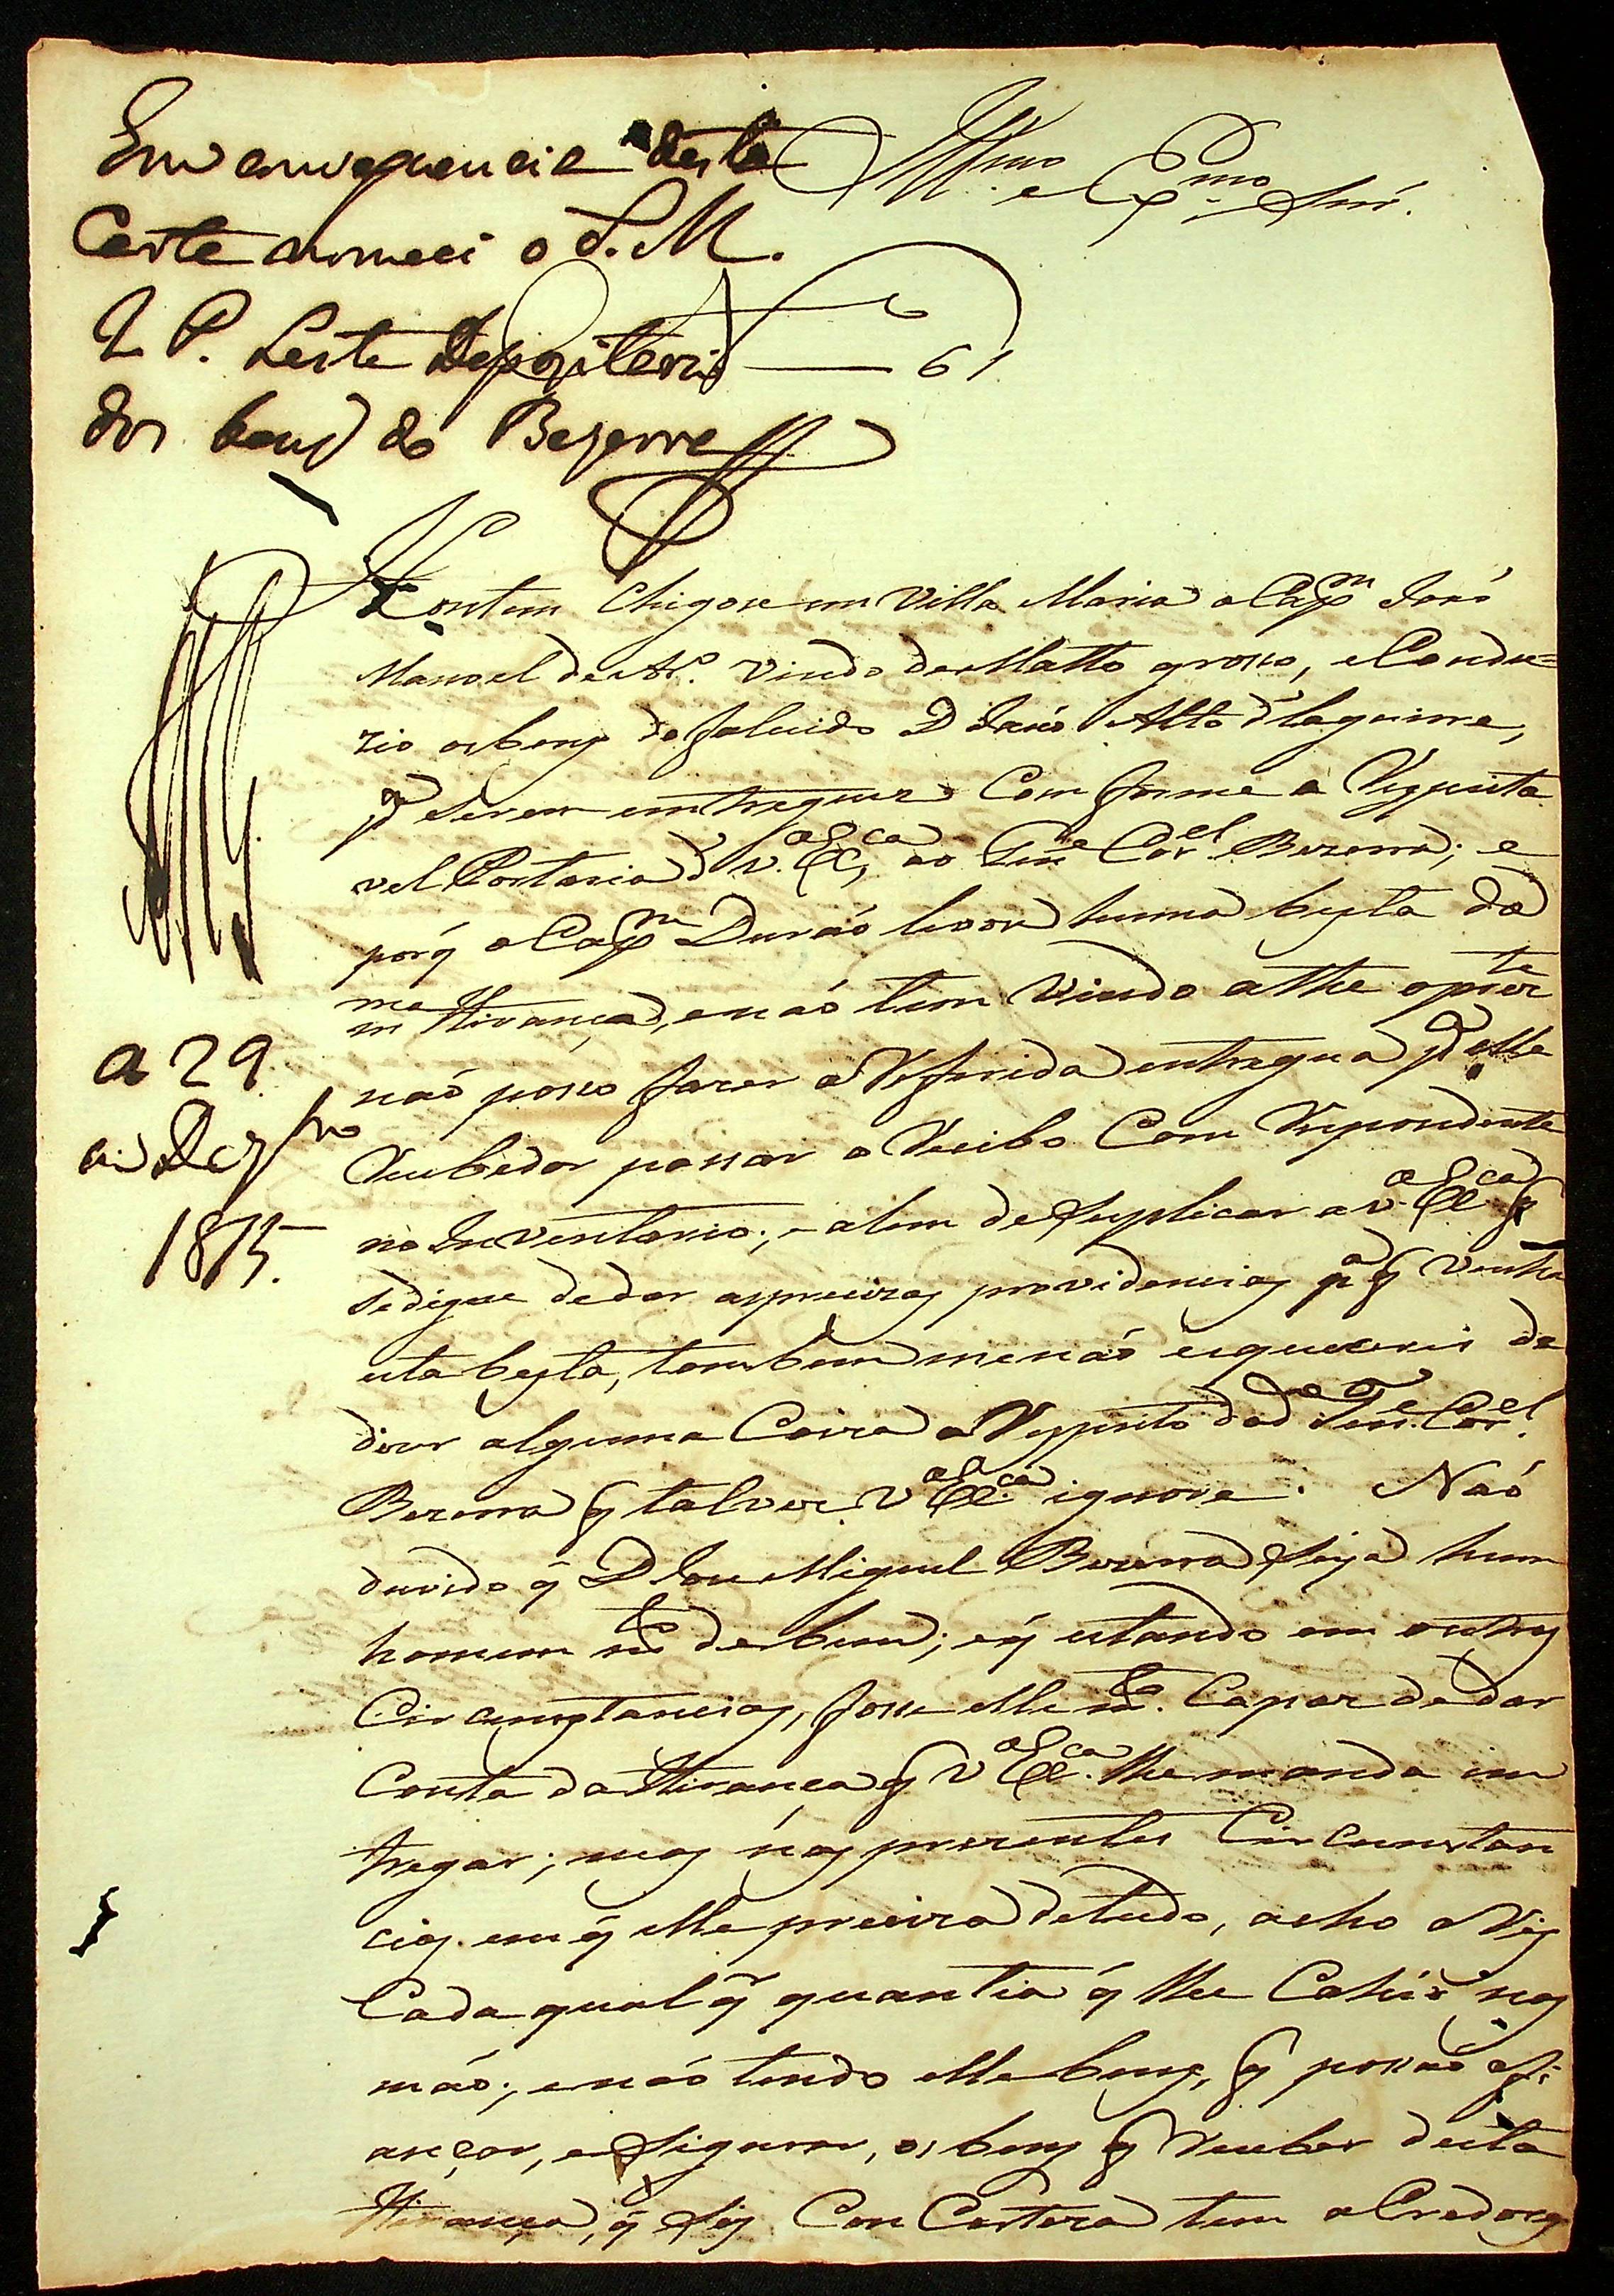 Em consequencia desta
Carta nomeei o S. M.
J P. Leite Depozitario
dos bens do Bezerra
Illmo. e Exmo. Snr.
61
A 29
de Dezbro
1815.
Hontem Chegou em Villa Maria o Capm João
Manoel de Ar.o vindo de Matto grosso, e Condu=
zio os bens do falecido D João Alto d'laguirra,
pa serem entregues Com forme a Respeita
vel Portaria d V. Exca, ao Tene Corel Bezerra; e
porq̃ o Capm Durão levou huma besta da
mma Herança, e não tem vindo athe o prezte
não posso fazer a Referida entregua pa elle
Recebedor passar o Recibo Com Respondente
no Inventario; e alem de Suplicar a V. Exca q̃
se digne de dar as precizas providencias pa q̃ venha
esta besta, tambem me não esquecerei de
dizer alguma Coiza a Respeito do do Tene. Corel.
Bezerra q̃ talvez V. Exca ignore. Não
duvido q̃ D Joze Miguel Bezerra Seja hum
homem mto de bem; e q̃ estando em outras
Circunstancias, fosse elle mto. Capaz de dar
Conta da Herança q̃ V Exca. lhe manda en
tregar; mas nas prezentes Circunstan
cias em q̃ elle preciza de tudo, acho a Ris
Cada qualq̃r quantia q̃ lhe Cahir nas
mãos; e não tendo elle bens, q̃ possão afi
ançar, e Sigurar, os bens q̃ Receber desta
Herança, q̃ Sej Con Certeza tem a Credores